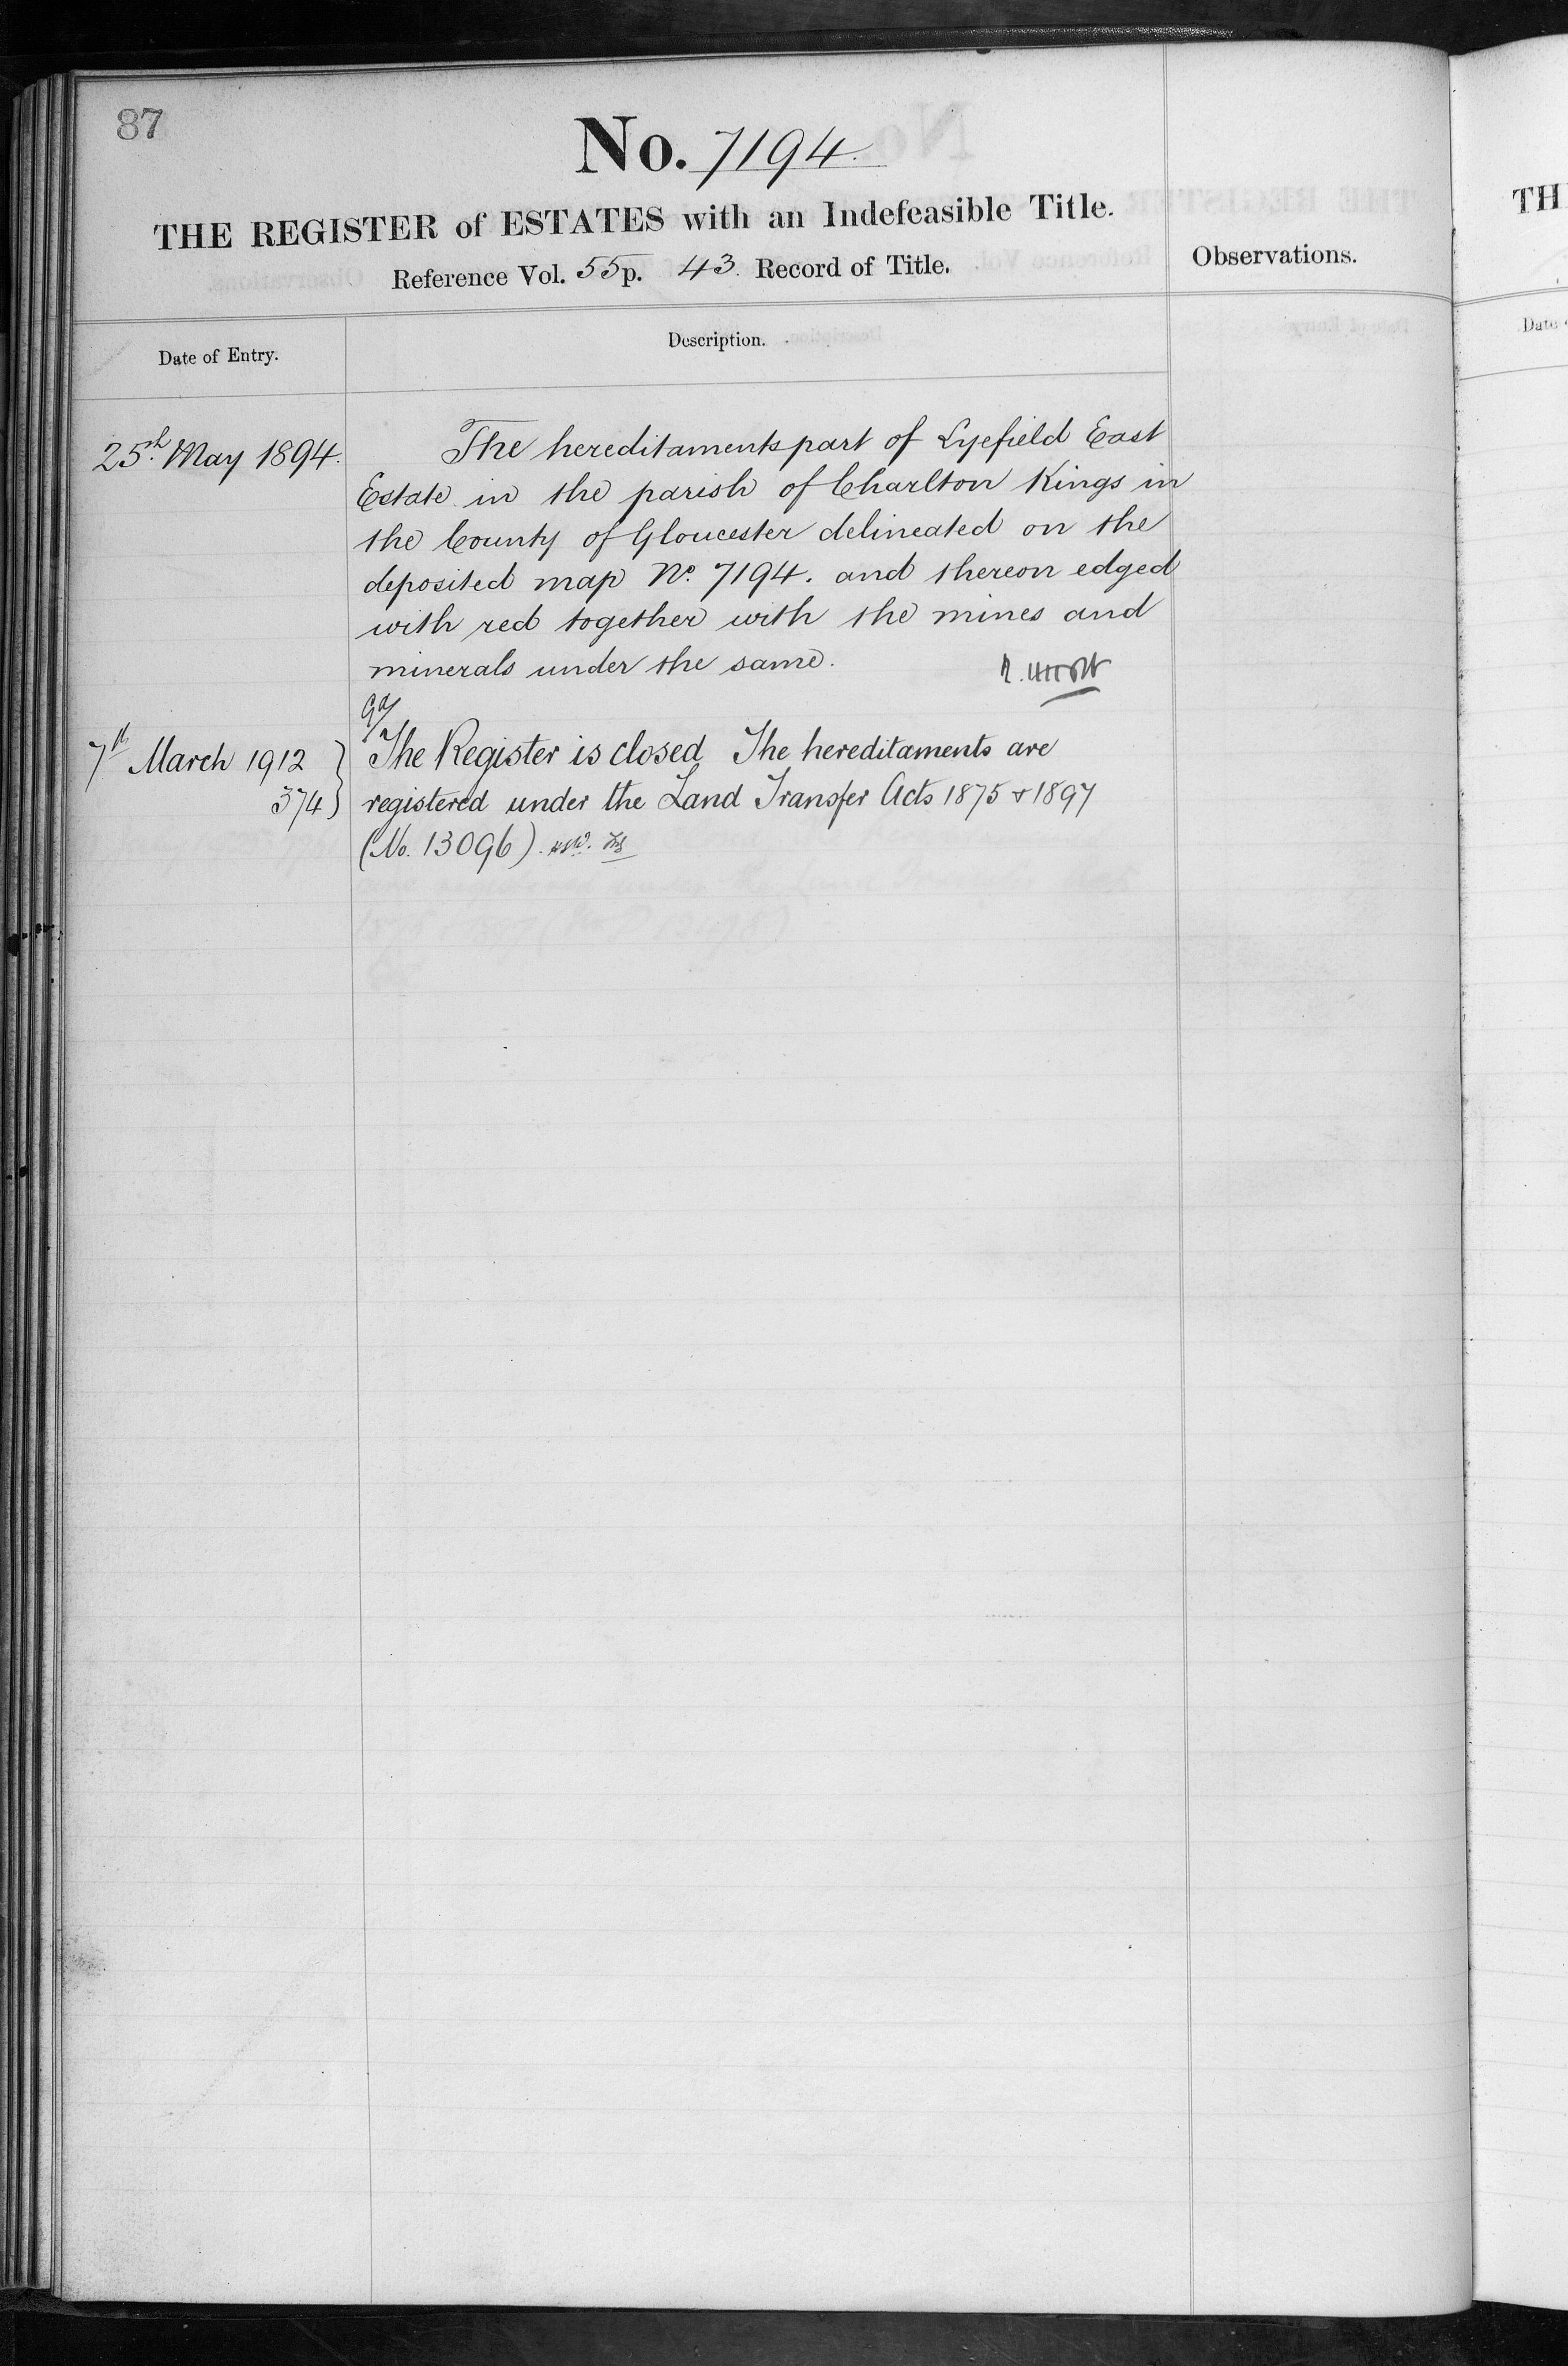 87
No. 7194.
THE REGISTER of ESTATES with an Indefeasible Title.
Reference Vol. 55 p. 43. Record of Title.
Observations.
Date of Entry.
Description.
25th May 1894.
The hereditaments part of Lyefield East
Estate in the parish of Charlton Kings in
the County of Gloucester delineated on the
deposited map No. 7194. and thereon edged
with red together with the mines and
minerals under the same.
7th March 1912
374
The Register is closed The hereditaments are
registered under the Land Transfer Acts 1875 & 1897
(No. 13096).
TH
Date